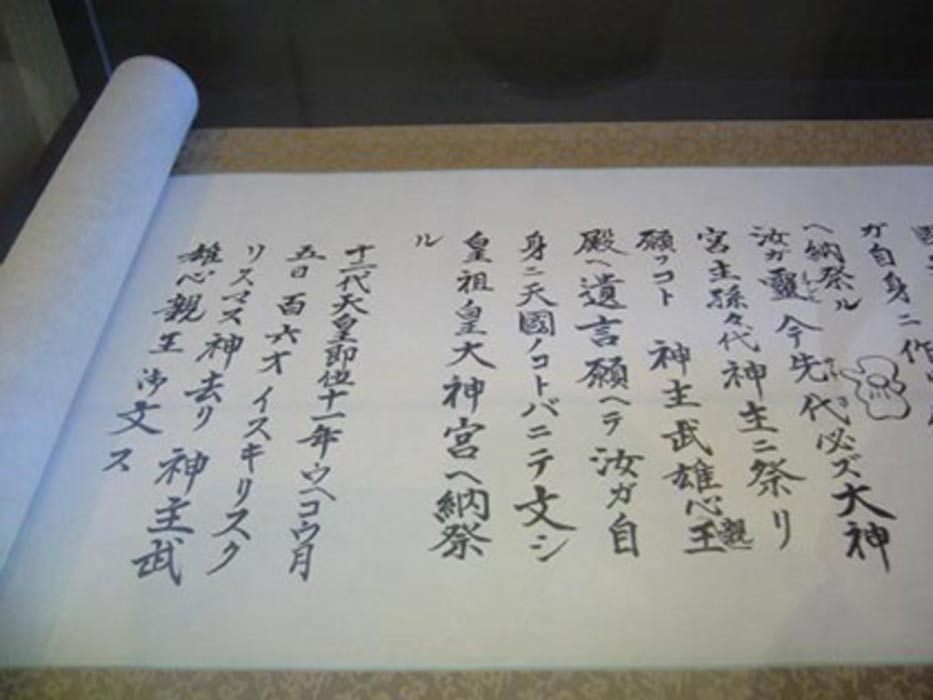 ガ自身ニ作
ヘ納祭ル
汝ガ靈今先代必ズ大神
宮主孫々代神主ニ祭リ
願ッコト 神主武雄心親王
殿ヘ遺言願ヘテ汝ガ自
身ニ天國ノコトバニテ文シ
皇祖皇大神宮ヘ納祭
ル
十二代天皇即位十一年ウヘコウ月
五日百六才イスキリスク
リスマス神去リ 神主武
雄心親王 御文ス